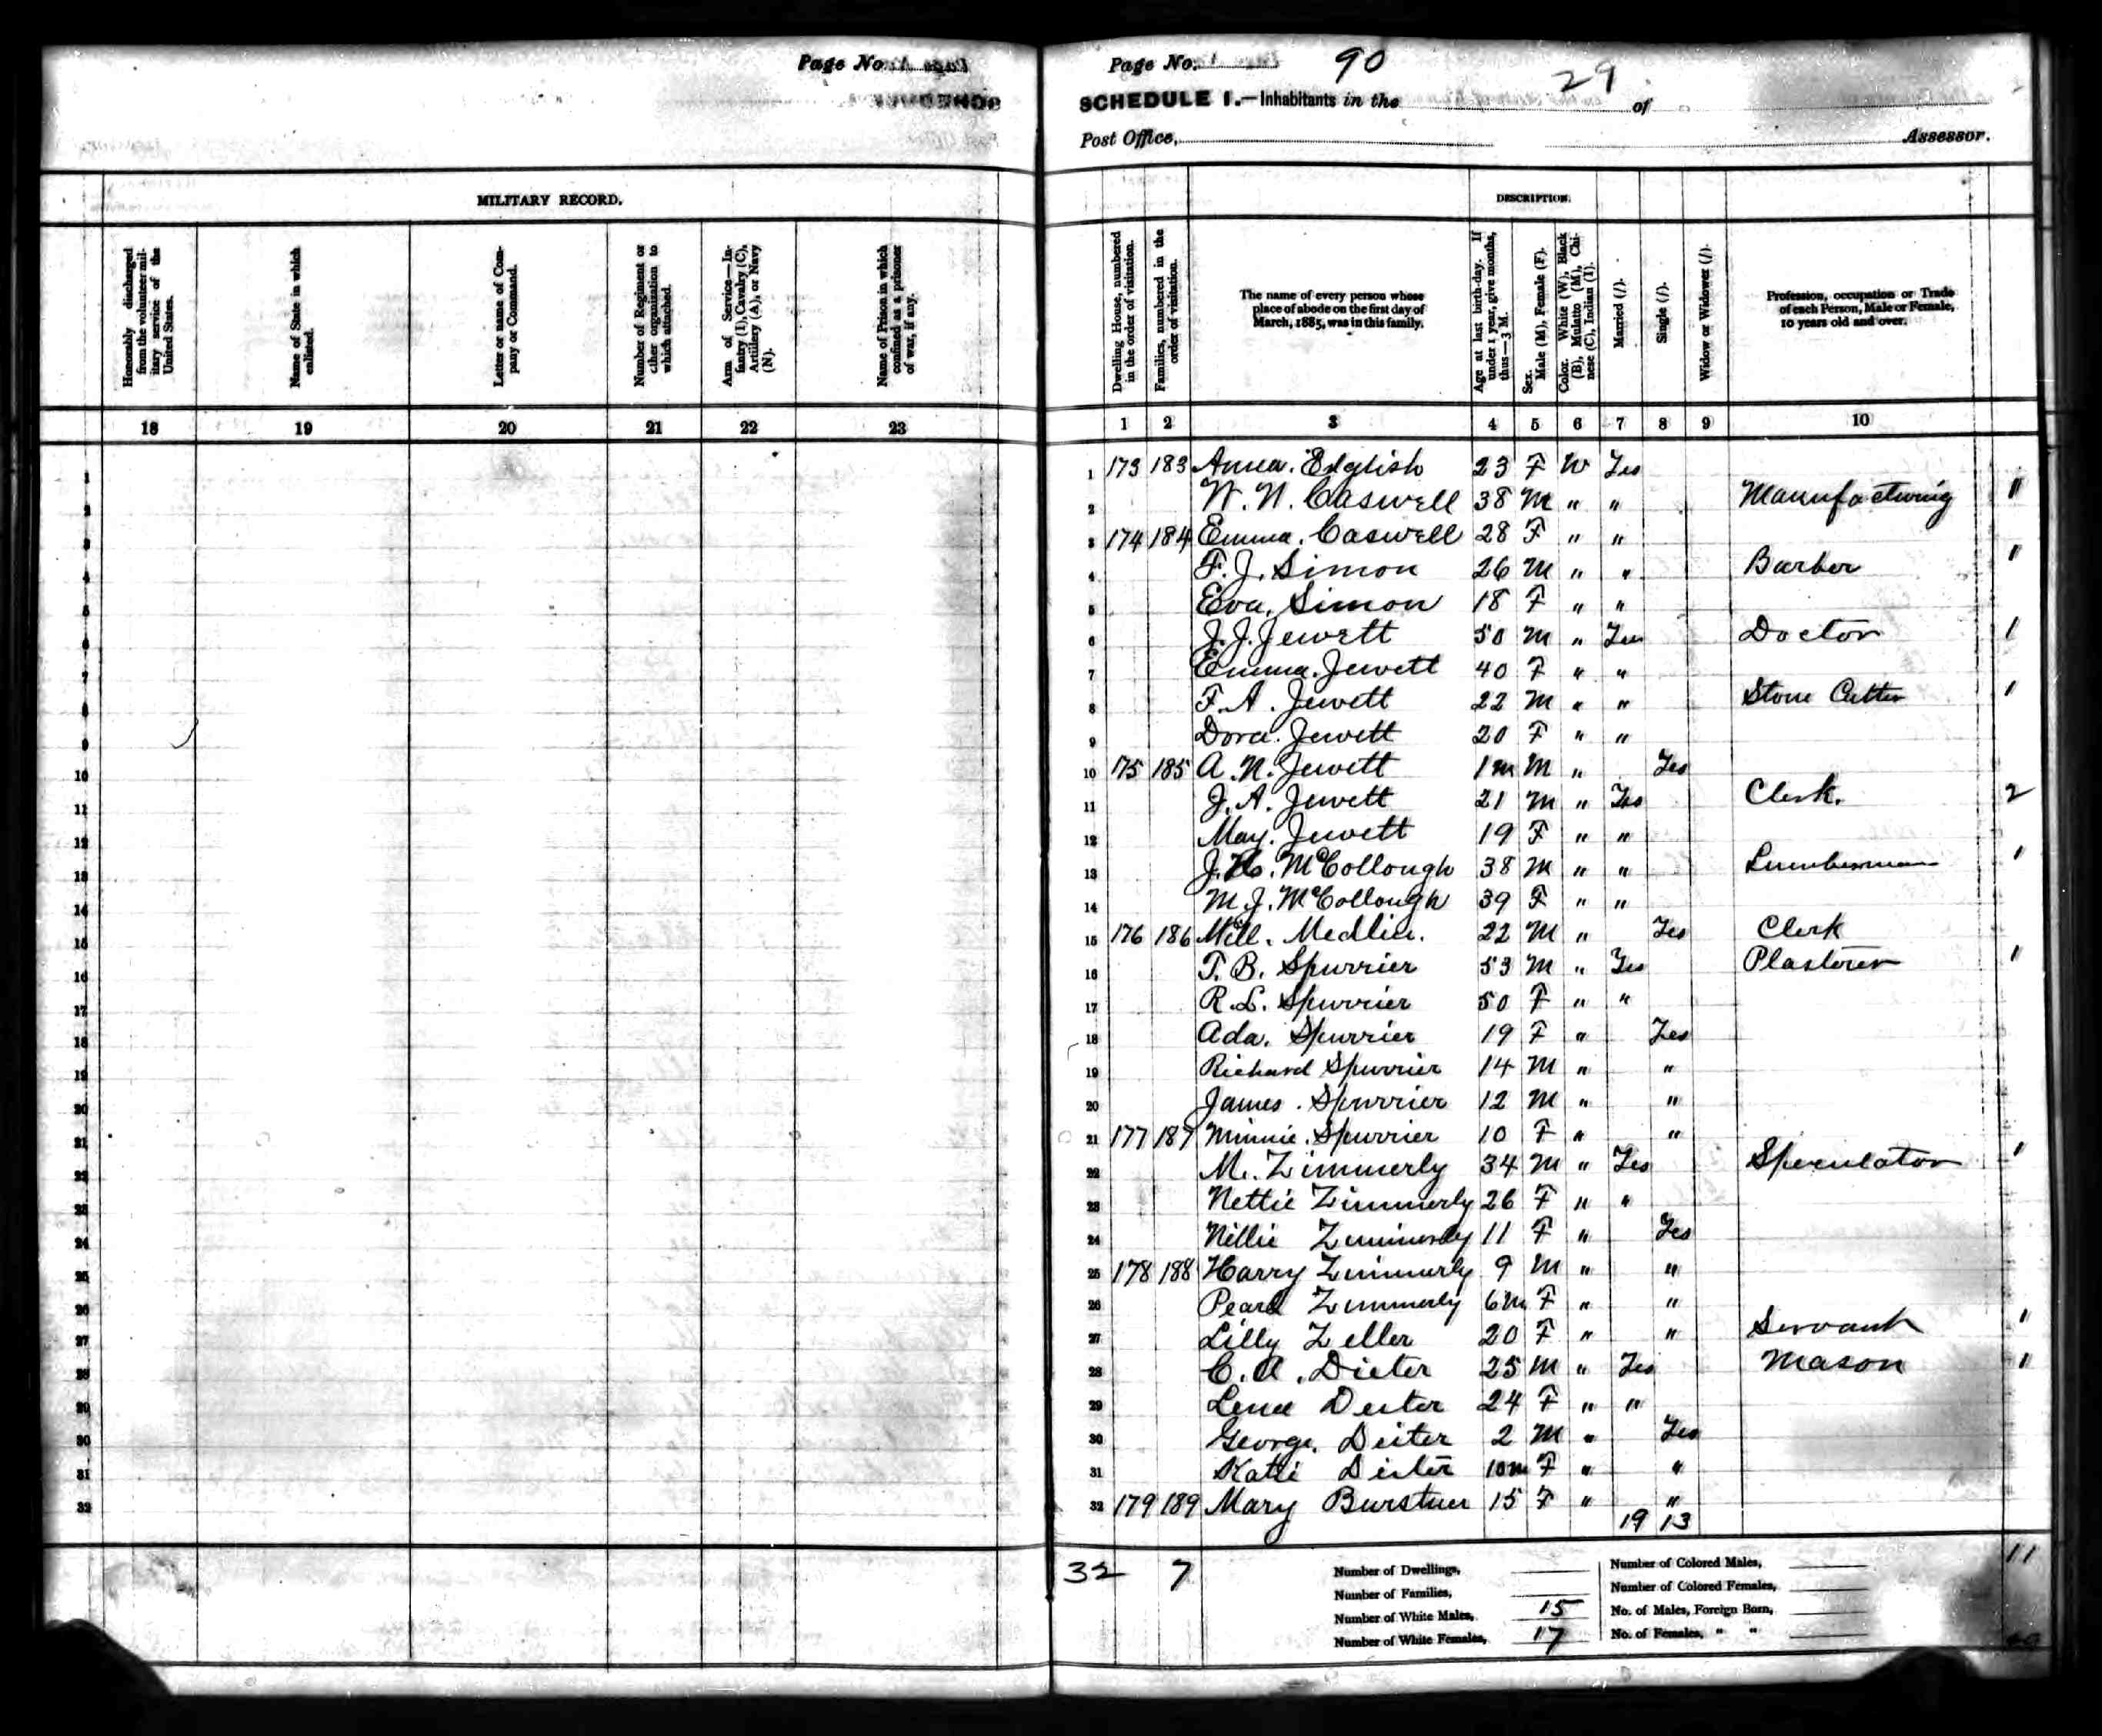 Page No.
MILITARY RECORD.
Honorably discharged from the volunteer military service of the United States.
Name of State in which enlisted.
Letter or name of Company or Command.
Number of Regiment or other organization to which attached.
Arm of Service—Infantry (I), Cavalry (C), Artillery (A), or Navy (N).
Name of Prison in which confined as a prisoner of war, if any.
18 19 20 21 22 23
Page No. 90
29
SCHEDULE 1.—Inhabitants in the of
Post Office, Assessor.
DESCRIPTION.
Dwelling House, numbered in the order of visitation.
Families, numbered in the order of visitation.
The name of every person whose place of abode on the first day of March, 1885, was in this family.
Age at last birth-day. If under 1 year, give months, thus—3 M.
Sex. Male (M), Female (F).
Color. White (W), Black (B), Mulatto (M), Chinese (C), Indian (I).
Married (/).
Single (/).
Widow or Widower (/).
Profession, occupation or Trade of each Person, Male or Female, 10 years old and over.
1 2 3 4 5 6 7 8 9 10
1 173 183 Anna. English 23 F W Yes
2 W. N. Caswell 38 M " " Manufacturing "
3 174 184 Emma. Caswell 28 F " "
4 F. J. Simon 26 M " " Barber "
5 Eva. Simon 18 F " "
6 J. J. Jewett 50 M " Yes Doctor 1
7 Emma. Jewett 40 F " "
8 F. A. Jewett 22 M " " Stone Cutter 1
9 Dora. Jewett 20 F " "
10 175 185 A. N. Jewett 1m M " Yes
11 J. A. Jewett 21 M " Yes Clerk. 2
12 May. Jewett 19 F " "
13 J. McCollough 38 M " " Lumberman 1
14 M J. McCollough 39 F " "
15 176 186 Will. Medlin. 22 M " Yes Clerk
16 T. B. Spurrier 53 M " Yes Plasterer "
17 R. L. Spurrier 50 F " "
18 Ada. Spurrier 19 F " Yes
19 Richard Spurrier 14 M " "
20 James. Spurrier 12 M " "
21 177 187 Minnie. Spurrier 10 F " "
22 M. Zimmerly 34 M " Yes Speculator 1
23 Nettie Zimmerly 26 F " "
24 Nillie Zimmerly 11 F " Yes
25 178 188 Harry Zimmerly 9 M " "
26 Pearl Zimmerly 6m F " "
27 Lilly Zeller 20 F " " Servant 1
28 C. A. Dieter 25 M " Yes Mason "
29 Lena Deiter 24 F " "
30 George. Deiter 2 M " Yes
31 Katie Deiter 10m F " "
32 179 189 Mary Burstner 15 F " "
19 13
32 7
Number of Dwellings,
Number of Families,
Number of White Males, 15
Number of White Females, 17
Number of Colored Males,
Number of Colored Females,
No. of Males, Foreign Born,
No. of Females, " "
11